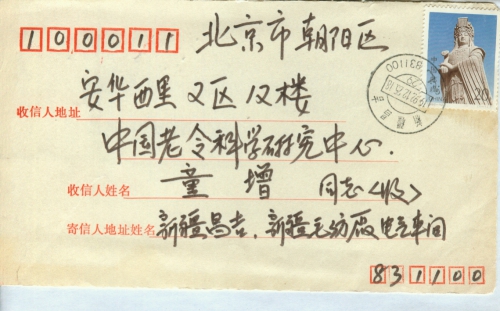 100011
北京市朝阳区
安华西里又区12楼
收信人地址
中国老令科学研究中心.
收信人姓名 童增 同志<收>
寄信人地址姓名 新疆昌吉.新疆毛纺厂电气车间
831100
20
831100
新疆昌吉